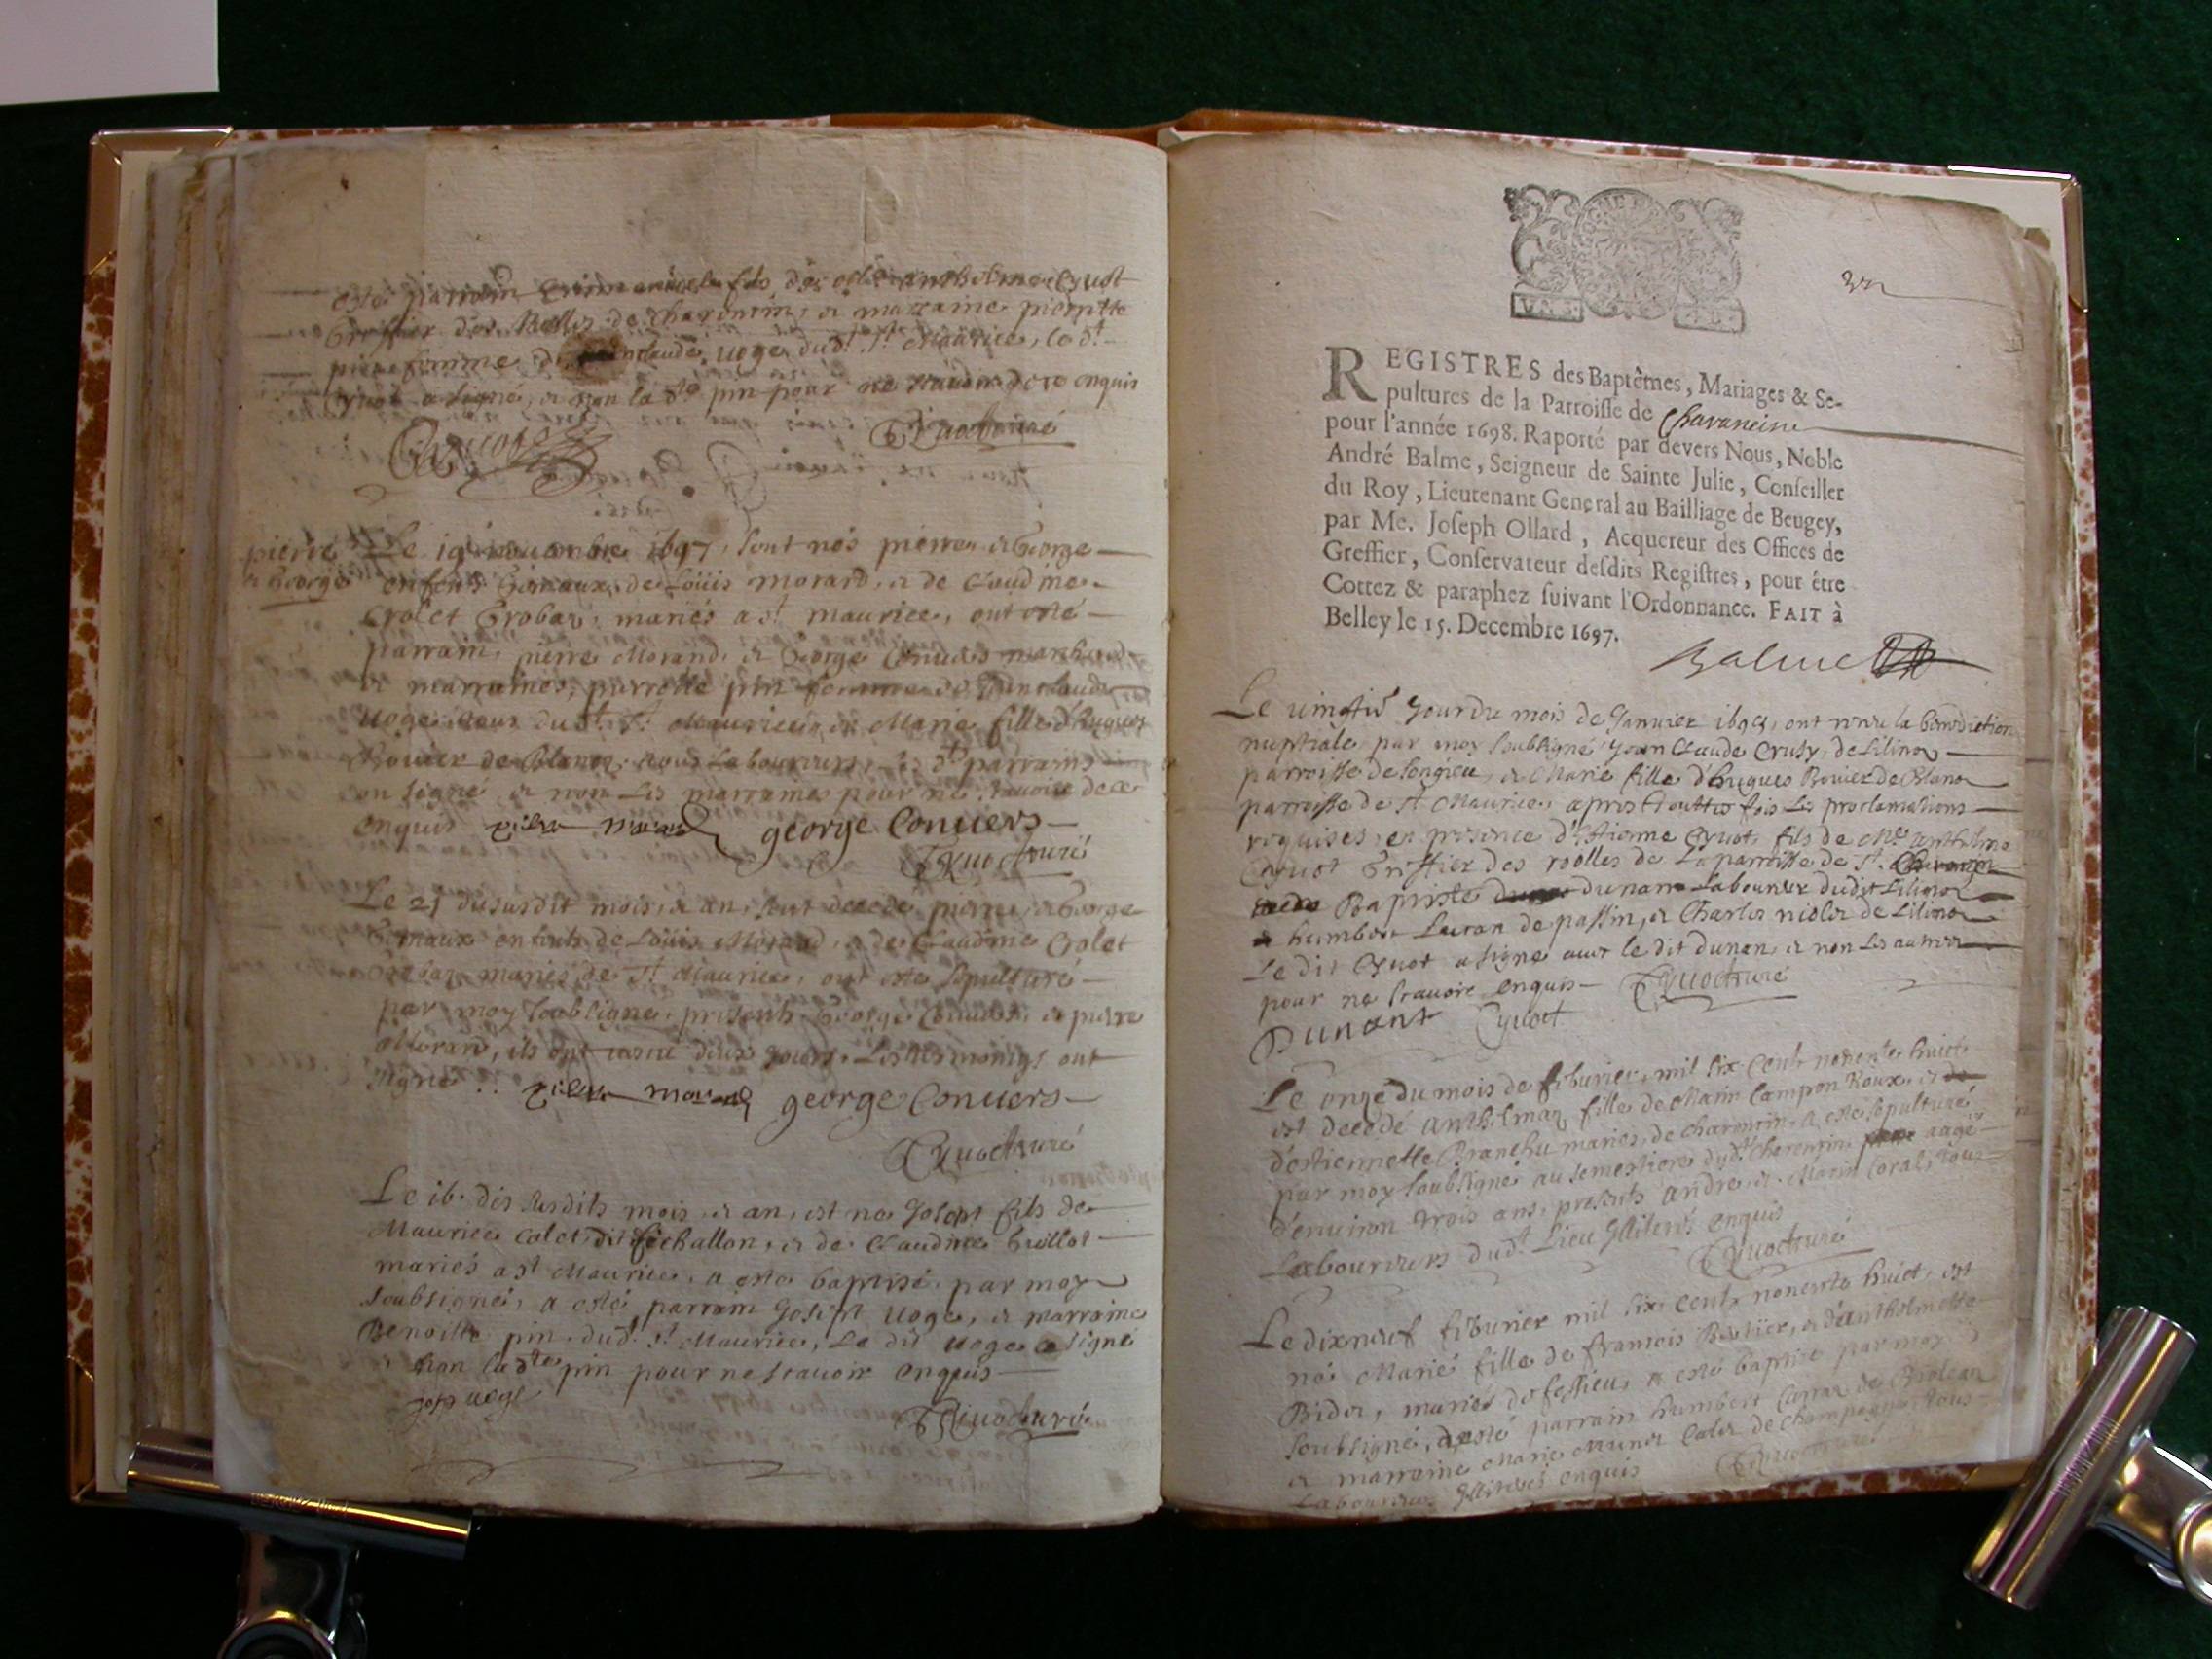 esté parrain fils de anthelme Cyuot
Greffier des Rolles de charencin, et marraine pierrette
pin femme de claude uoge dudt St Maurice, le dt
Cyuot a signé, et non la dte pin pour ne scauoir de ce enquis
Cyuot curé
pierre
et George
Le 19 nouembre 1697, sont nés pierre et George
enfans Gemaux de Loüis morard, et de Claudine
Crolet Grobas, mariés a st maurice, ont esté
parrain, pierre Morand, et George Conuers marchand
et marraines, pierrette pin femme de Jean claude
uoge dudt St Maurice, et Marie fille d'hugues
Rouier de Blanaz, tous Laboureurs, les dts parrains
on signé et non Les marraines pour ne scauoir de ce
enquis george Conuers
Cyuot curé
Le 21 du susdit mois, et an, sont decedé pierre, et George
Gemaux enfants de Loüis Morard, et de Claudine Crolet
Grobas mariés de St Maurice, ont esté sepulturé
par moy soubsigné, presents George Conuers, et pierre
Morard, ils ont uescu deux jours. Les tesmoings ont
signé
george Conuers
Cyuot curé
Le 16. des susdits mois, et an, est né Joseph fils de
Maurice Calet, dit fechallon, et de Claudine Guillot
mariés a st Maurice, a esté baptisé par moy
soubsigné, a esté parrain Joseph uoge, et marraine
Benoitte pin dudt st Maurice, Le dit uoge a signé
non la dte pin pour ne scauoir enquis
josp uoge
Cyuot curé
REGISTRES des Baptêmes, Mariages & Se-
pultures de la Parroisse de Charancin
pour l'année 1698. Raporté par devers Nous, Noble
André Balme, Seigneur de Sainte Julie, Conseiller
du Roy, Lieutenant General au Bailliage de Beugey,
par Me. Joseph Ollard, Acquereur des Offices de
Greffier, Conservateur desdits Registres, pour être
Cottez & paraphez suivant l'Ordonnance. FAIT à
Belley le 15. Decembre 1697.
Balme
Le jour du mois de Januier 1698, ont receu la Benediction
nuptiale par moy soubsigné Jean Claude Crusy, de Lilinaz
parroisse de songieu, et Marie fille d'hugues Rouier de Blanaz
parroisse de St Maurice, apres touttes fois les proclamations
requises, en presence d'Etienne Cyuot, fils de Me anthelme
Cyuot Greffier des roolles de La parroisse de St.
Baptiste dunan Laboureur dudit Lilinaz
et humbert Lauran de passin, et Charles niolet de Lilinaz
Le dit Cyuot a signé auec le dit dunan, et non les autres
pour ne scauoir enquis Cyuot curé
Dunant Cyuot
Le onze du mois de feburier, mil six cent nonente huict
est decedé anthelmaz fille de Marin Campon Roux, et
d'estiennette Branchu mariés, de charencin, a esté sepulturé
par moy soubsigné au semestiere dudt charencin aagé
d'enuiron trois ans, presents andre, et Marin Coral, tous
Laboureurs dudt Lieu Jlliterés enquis
Cyuot curé
Le dixneuf feburier mil six cent nonente huict, est
né Marie fille de francois Bertier, et d'anthelmette
Bidet, mariés de fessieu, a esté baptisé par moy
soubsigné, a esté parrain humbert Carraz de Brolean
et marraine Marie Munet Calet de champagne, tous
Laboureurs Jlliterés enquis Cyuot curé